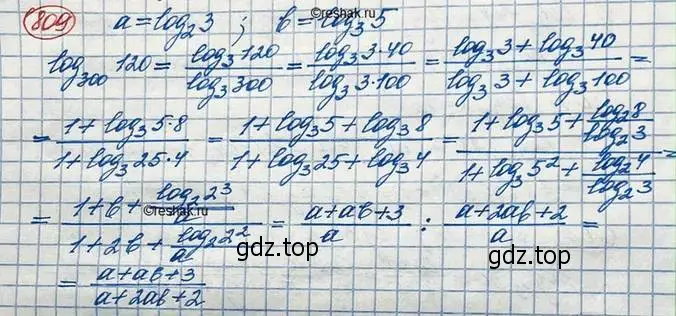 809 a = log₂3 ; b = log₃5 ©reshak.ru
log₃₀₀ 120 = log₃120 / log₃300 = log₃3·40 / log₃3·100 = (log₃3 + log₃40) / (log₃3 + log₃100) =
= (1 + log₃5·8) / (1 + log₃25·4) = (1 + log₃5 + log₃8) / (1 + log₃25 + log₃4) = (1 + log₃5 + log₂8 / log₂3) / (1 + log₃5² + log₂4 / log₂3) =
= (1 + b + log₂2³ / a) / (1 + 2b + log₂2² / a) = (a + ab + 3) / a : (a + 2ab + 2) / a =
= (a + ab + 3) / (a + 2ab + 2)
©reshak.ru
gdz.top
gdz.top